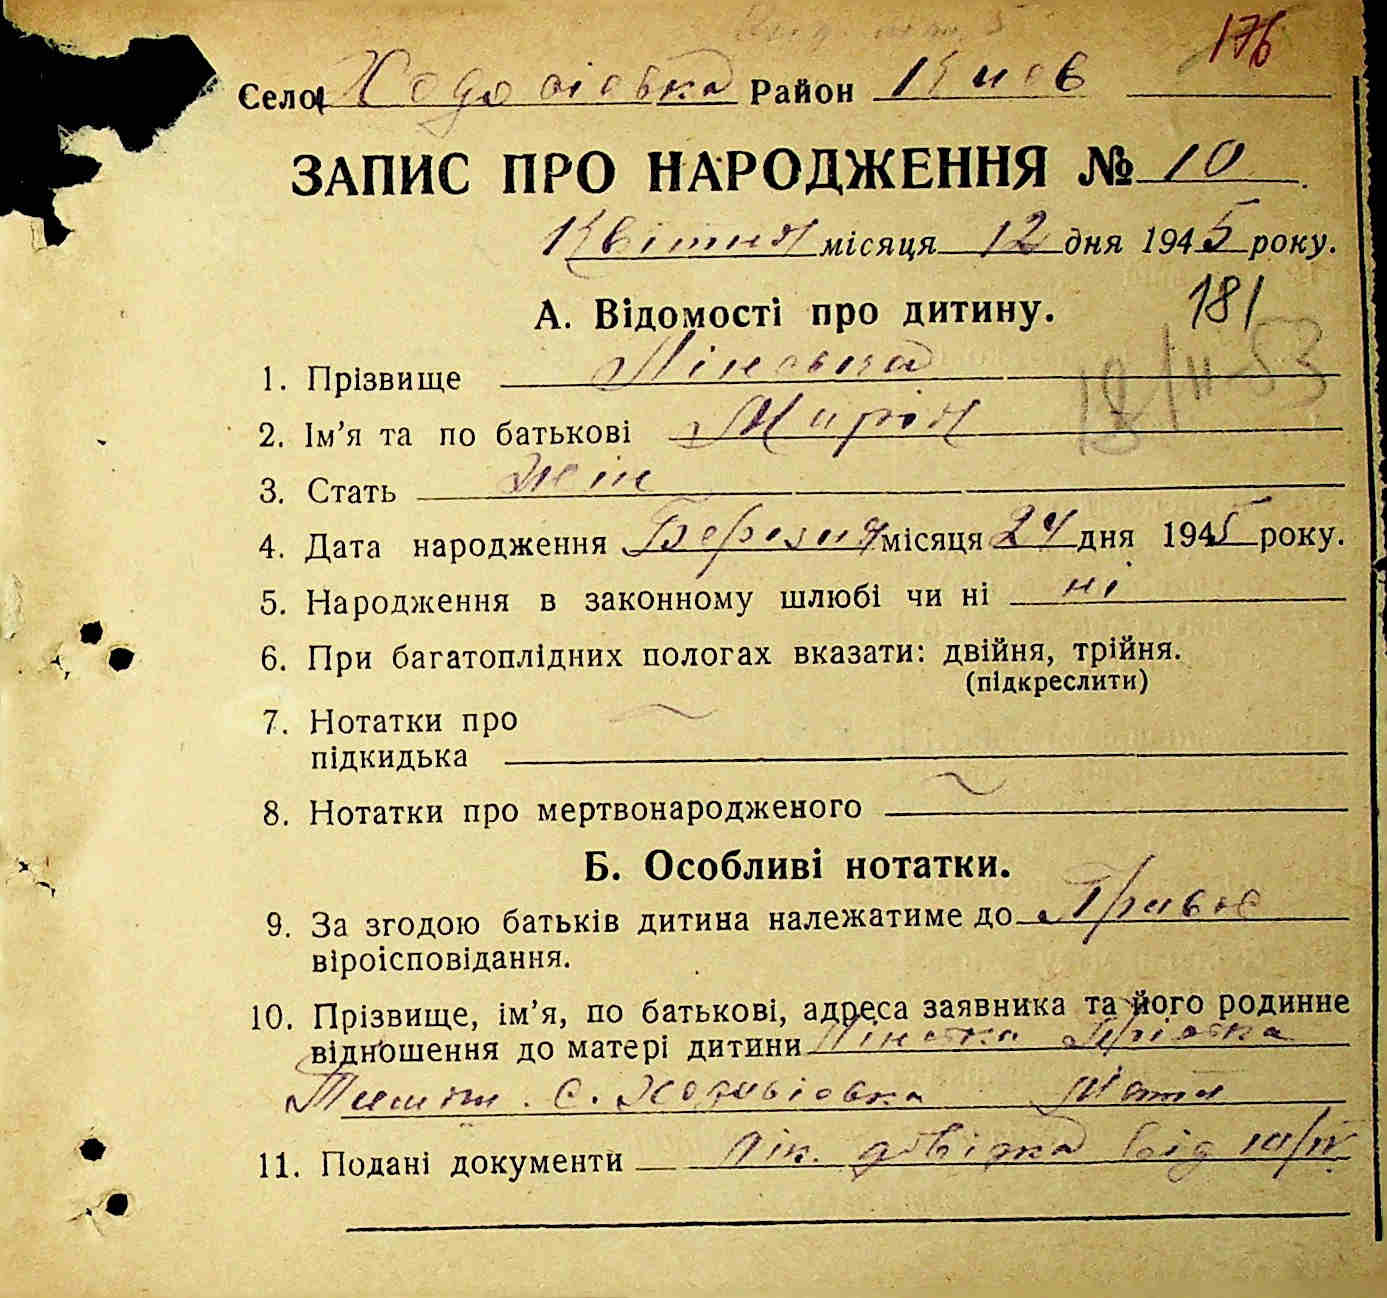 176
Село Ходосіовка Район Киев
ЗАПИС ПРО НАРОДЖЕННЯ № 10
Квітня місяця 12 дня 1945 року.
А. Відомості про дитину.
181
1. Прізвище
18/II-53
2. Ім'я та по батькові Марія
3. Стать жін
4. Дата народження Березня місяця 24 дня 1945 року.
5. Народження в законному шлюбі чи ні ні
6. При багатоплідних пологах вказати: двійня, трійня.
(підкреслити)
7. Нотатки про
підкидька
8. Нотатки про мертвонародженого
Б. Особливі нотатки.
9. За згодою батьків дитина належатиме до Правос
віроісповідання.
10. Прізвище, ім'я, по батькові, адреса заявника та його родинне
відношення до матері дитини
с. Ходосіовка Мати
11. Подані документи Лік. довідка від